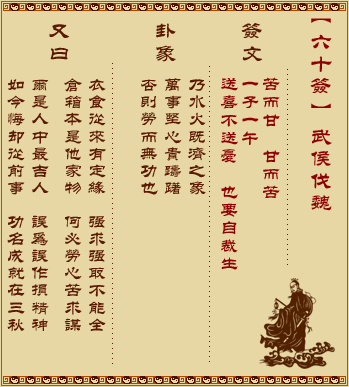 【六十簽】 武侯伐魏
簽文
苦而甘 甘而苦
一子一午
送喜不送憂 也要自裁生
卦象
乃水火既濟之象
萬事堅心貴躊躇
否則勞而無功也
又曰
衣食從來有定緣 强求强取不能全
倉箱本是他家物 何必勞心苦求謀
爾是人中最吉人 誤爲誤作損精神
如今悔却從前事 功名成就在三秋